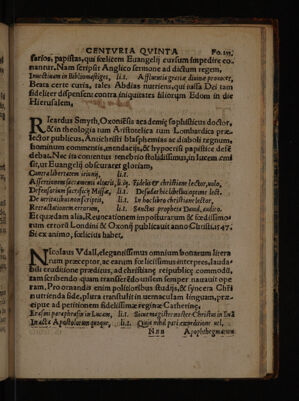 CENTVRIA QVINTA
Fo. 237.
farios, papistas, qui fœlicem Euangelij cursum impedire co
nantur. Nam scripsit Anglico sermone ad dictum regem,
Inuectiuam in Bibliomastiges, li.1. Assistentis gratiæ diuinæ
Beata certe curia, tales Abdias nutriens, qui iussa Dei tam
fideliter dispensent contra iniquitates filiorum Edom in die
Hierusalem.
Ricardus Smyth, Oxoniēsis academię sophisticus doctor,
& in theologia tam Aristotelica quam Lombardica præ-
lector publicus, Antichristi blasphemias ac diaboli regnum,
hominum commentis, mendacijs, & hypocrisi papistica defē
debat. Nec ita contentus tenebrio stolidissimus, in lucem emi
sit, vt Euangelij obscuraret gloriam,
Contra libertatem li.1.
Assertionem sacramenti altaris, li.1. Fidelis & christiane lector, volo,
Defensorium sacrificij Missæ, li.1.
De non scriptis, li.1. In hoc libro christiane lector,
Retractationem errorum, li.1. Sanctus propheta Dauid,
Et quædam alia. Reuocationem impostorum & fœdissimo
rum errorū Londini & Oxonij publicauit anno Christi 1547.
Si ex animo, fœlicius habet.
Nicolaus Vdall, elegantissimus omnium bonarum litera
rum præceptor, ac earum fœlicissimus interpres, lauda-
bili eruditione præditus, ad christiani reipublicę commodū,
tam scribendo quam transferēdo vtilem semper nauauit ope
ram, Pro eximijs eius politioribus studijs, & syncera Chri
sti credenda fide, plura transtulit in vernaculam linguam, præ-
cipue ad petitionem fidelissimæ reginæ Catherinę,
Erasmi paraphrasim in Lucam, li.1. Sicut magister noster Christus in
In acta Apostolorum quoque, li.1. Cum nihil pari expeditione vel,
Nnn Apophthegmatum